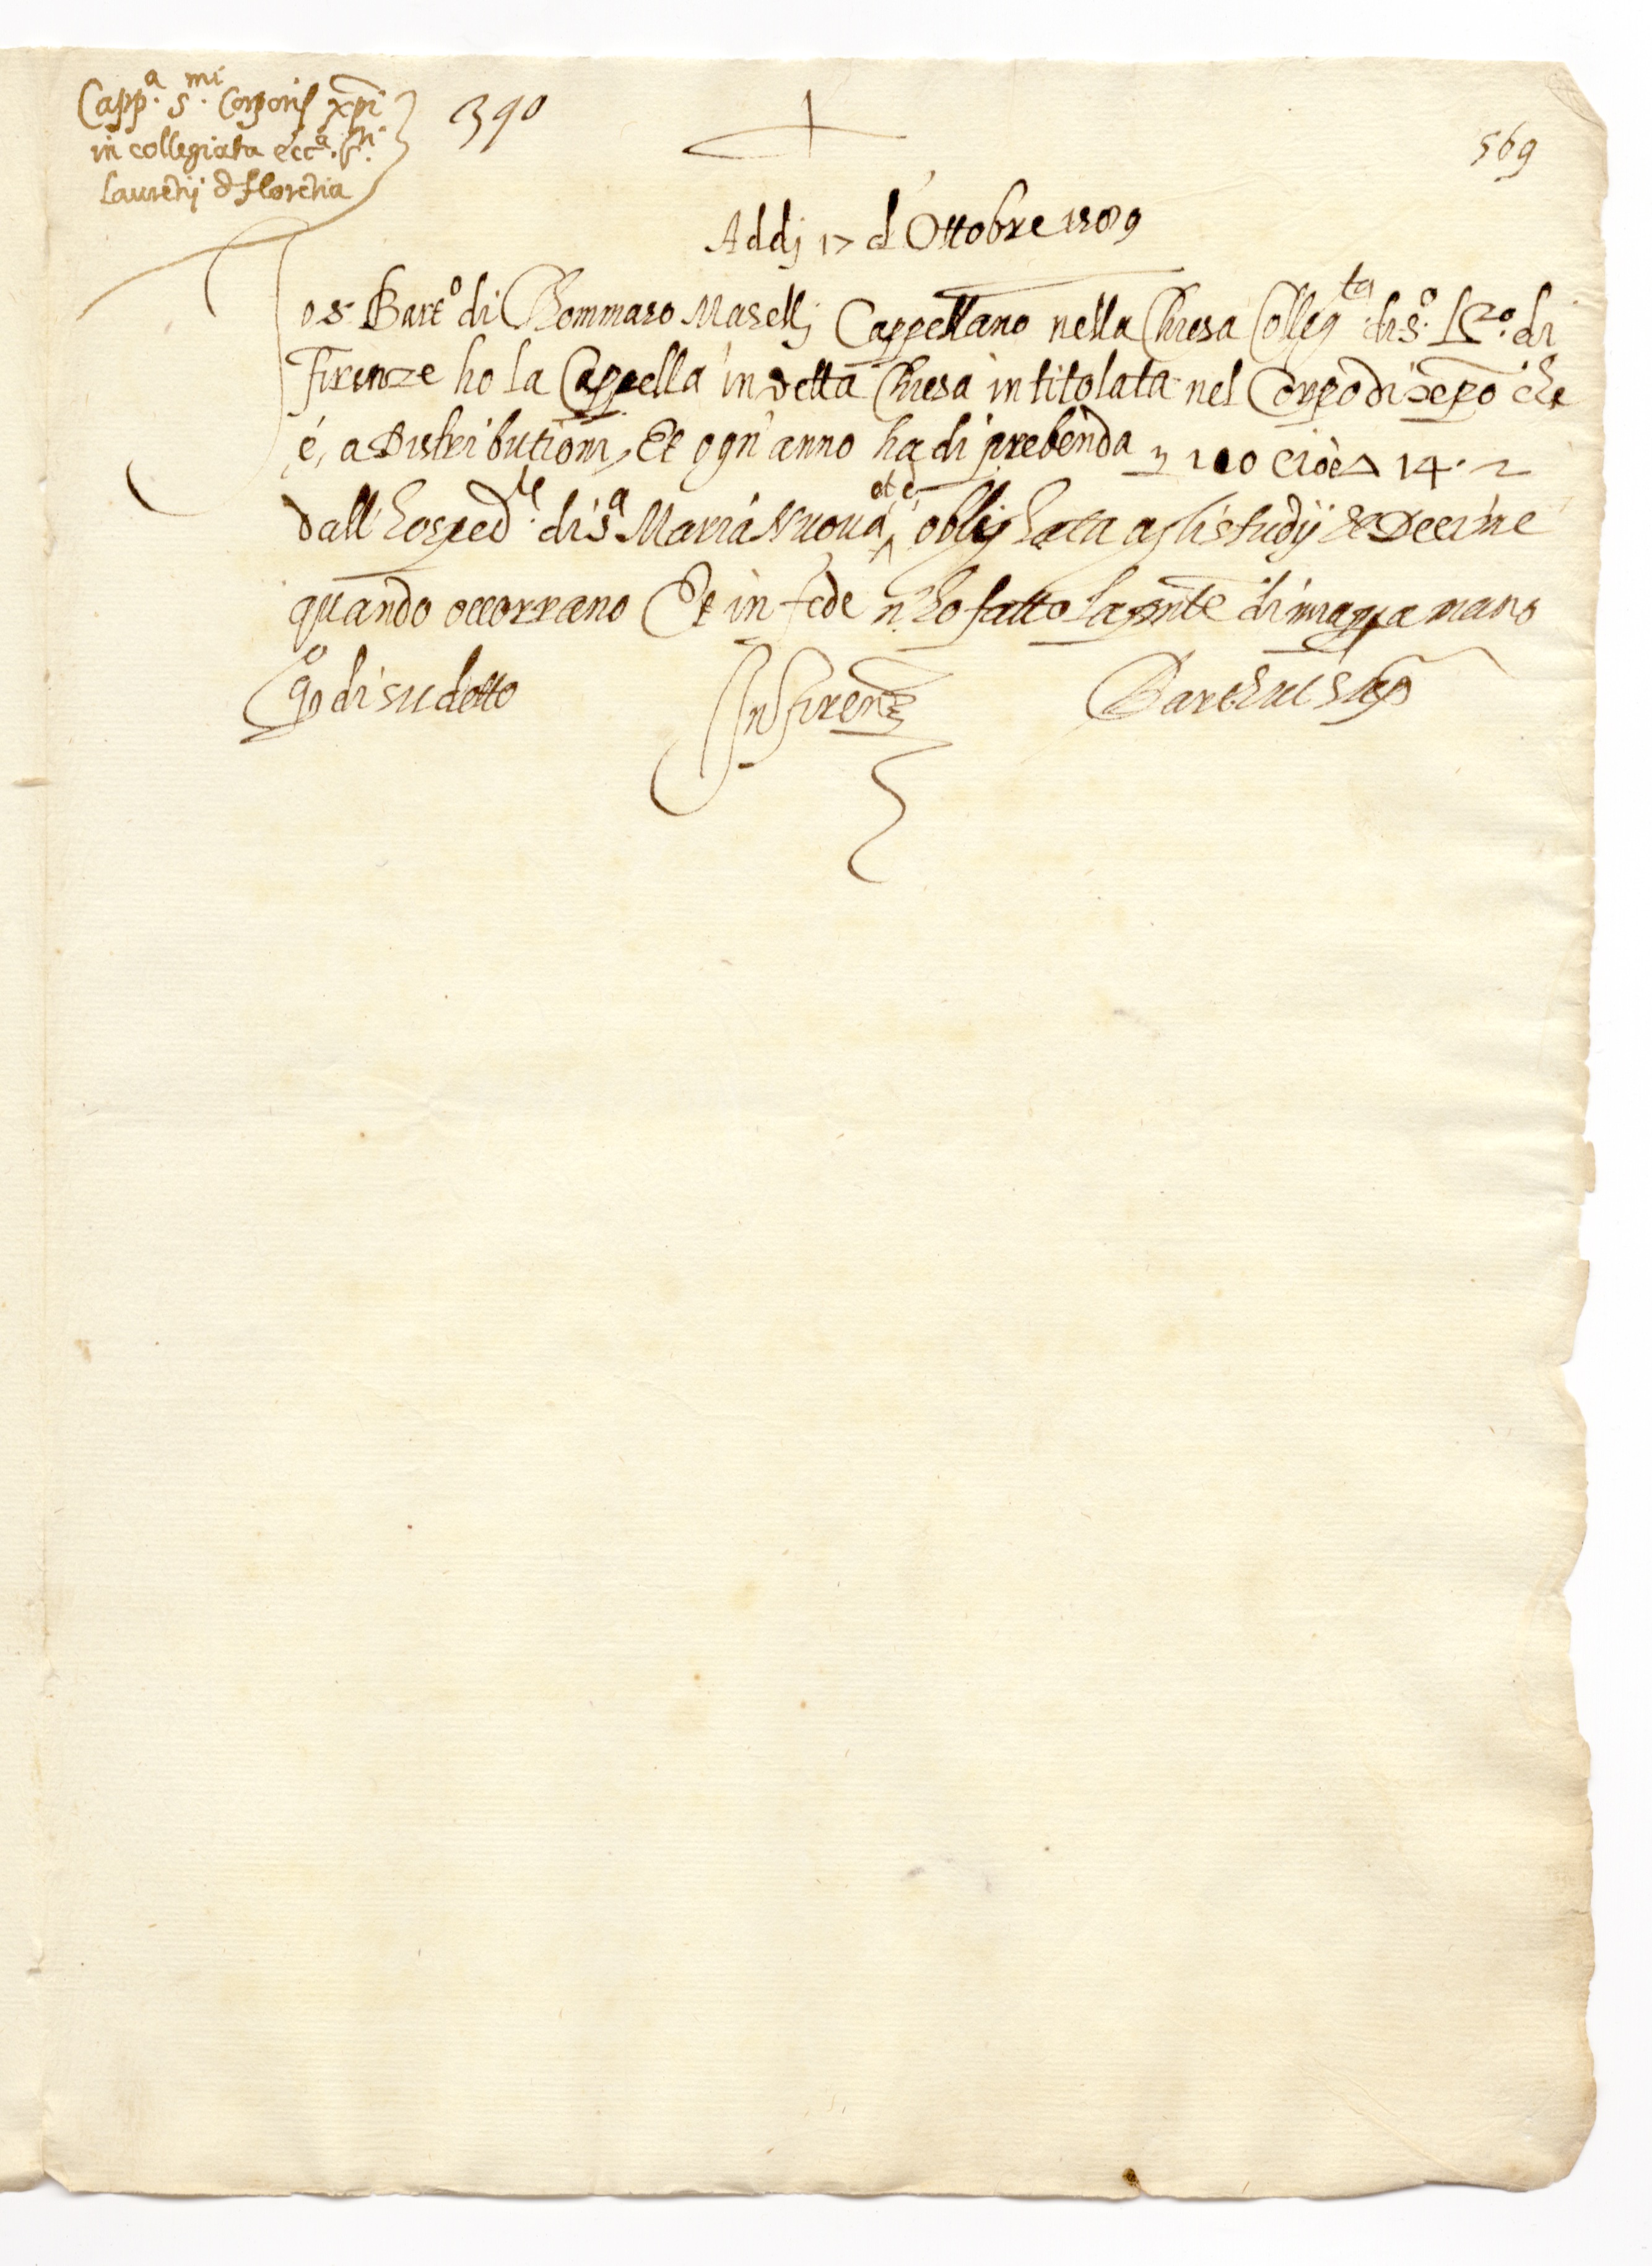 Capp.a S.mi Corporis xpi
in collegiata ecc.a S.ti
Laurentij d Florentia
390
569
Addj 17 d'Ottobre 1589
Io S. Bart.o di Thommaso Maselli Cappellano nella Chiesa Colleg.ta di S.o L.zo di
Firenze ho la Cappella in detta Chiesa intitolata nel Corpo di xepo che
é, a Distributioni, Et ogn'anno ha di prebenda 100 cioè 14. 2
dall hosped.le di S.a Maria Nuova et è oblighata agli studij et Decime
quando occorrano Et in fede n'ho fatto la pnte di mia ppa mano
q.o di sudetto
In Firenze
Bart.